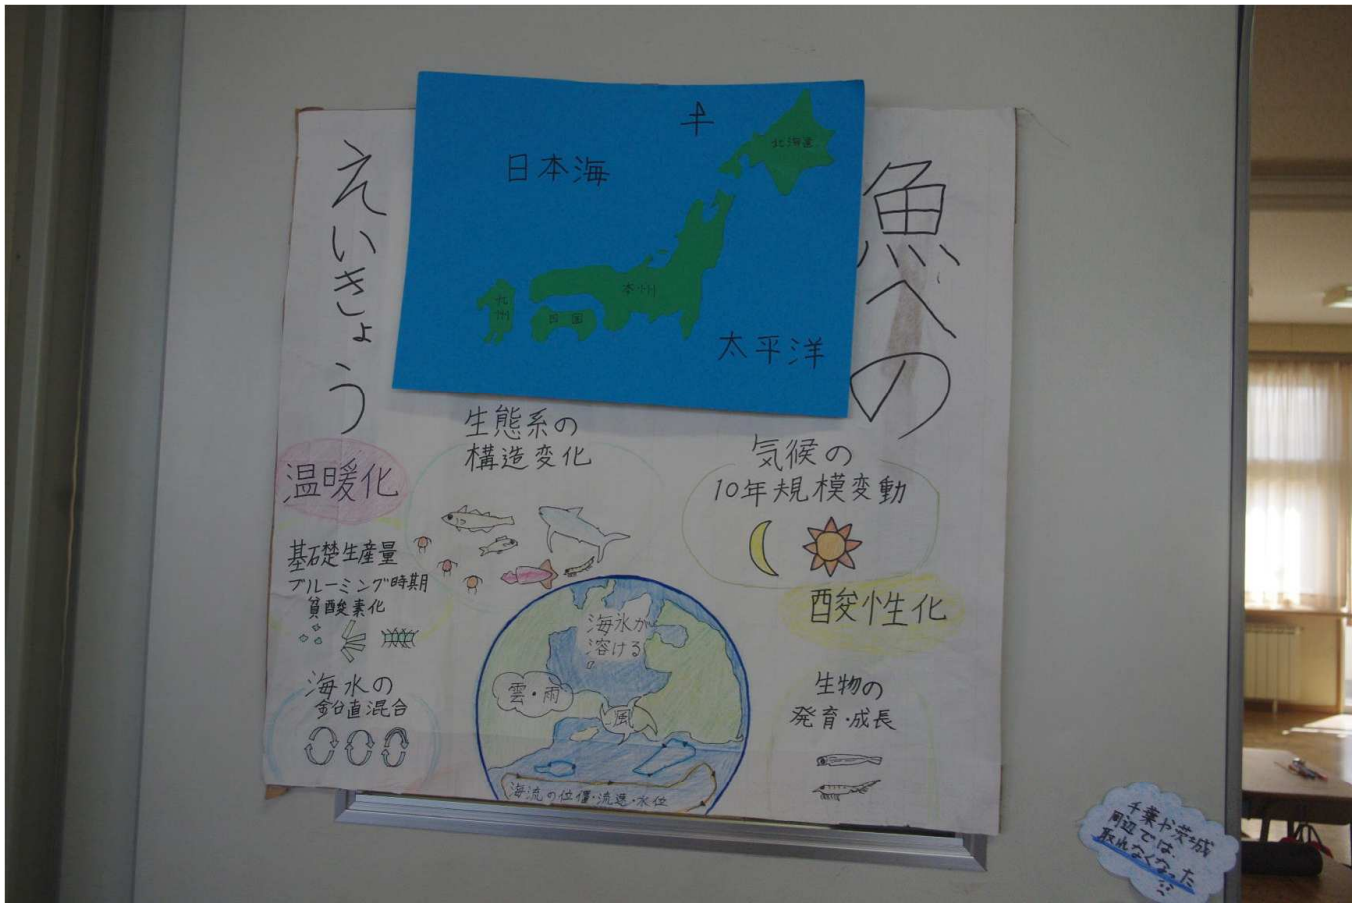 魚への
えいきょう
日本海
北海道
本州
九州
四国
太平洋
生態系の
構造変化
気候の
10年規模変動
温暖化
基礎生産量
ブルーミング時期
貧酸素化
酸性化
海氷が
溶ける。
雲・雨
風
海水の
鉛直混合
生物の
発育・成長
海流の位置・流速・水位
千葉や茨城
周辺では、
取れなくなった